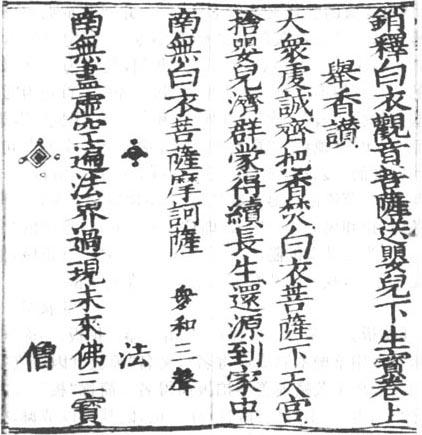 銷釋白衣觀音菩薩送嬰兒下生寶卷上
舉香讚
大衆虔誠齊把香焚白衣菩薩下天宮
捨嬰兒濟群蒙得續長生還源到家中
南無白衣菩薩摩訶薩 衆和三聲
法
南無盡虛空遍法界過現未來佛三寶
僧